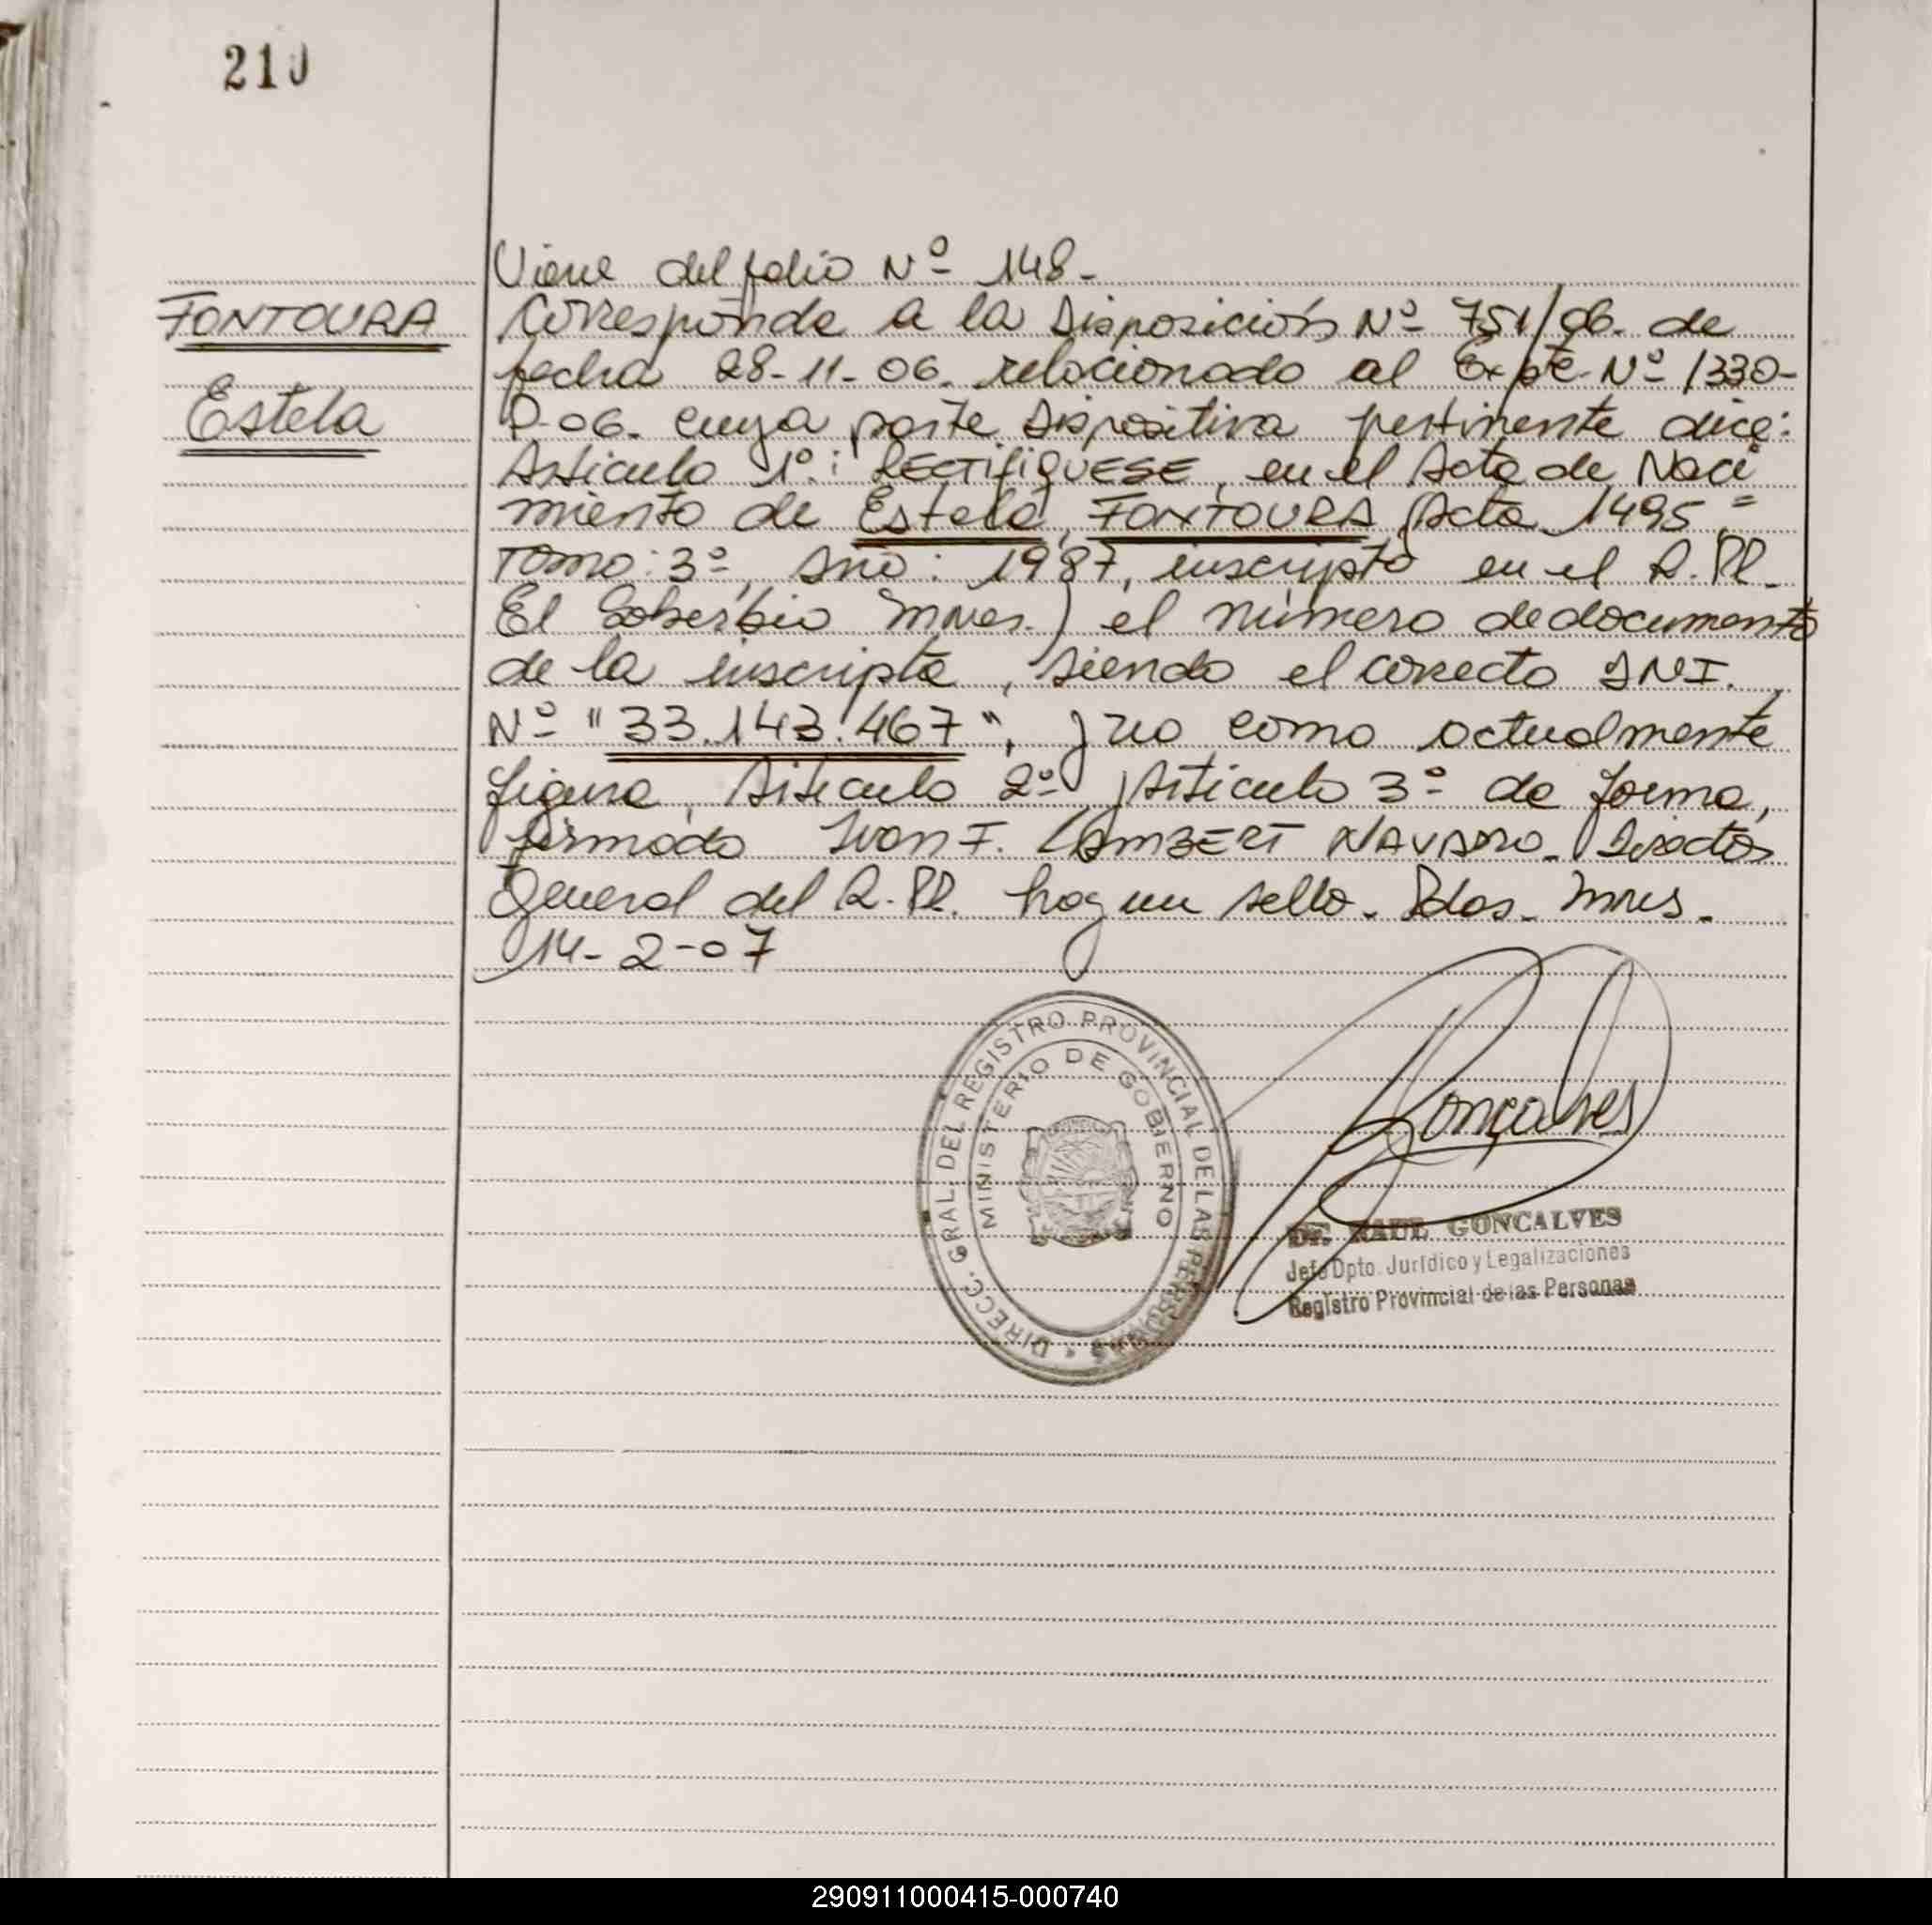 210
Viene del folio Nº 148-
FONTOURA
Corresponde a la Disposición Nº 751/06. de
fecha 28-11-06. relacionado al Expte. Nº 1330-
Estela
D-06. cuya parte Dispositiva pertinente dice:
Articulo 1º: RECTIFIQUESE, en el Acta de Naci
miento de Estela, FONTOURA (Acta 1495,=
Tomo: 3º, Año: 1987, inscripto en el R.PP.
El Soberbio Mnes.) el número de documento
de la inscripta, siendo el correcto DNI.,
Nº "33.143.467", y no como actualmente
figura, Articulo 2º y Articulo 3º de forma,
firmado Ivan F. LAMBERT NAVARRO. Director
General del R.PP. hay un sello. Pdas. Mnes.
14-2-07
DIRECC. GRAL. DEL REGISTRO PROVINCIAL DE LAS PERSONAS
MINISTERIO DE GOBIERNO
Gonçalves
Dr. RAUL GONCALVES
Jefe Dpto. Jurídico y Legalizaciones
Registro Provincial de las Personas
290911000415-000740